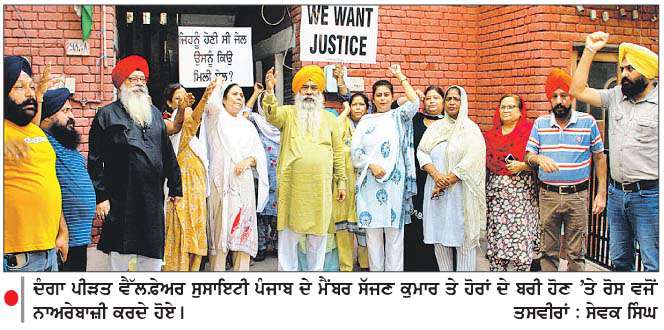 WE WANT
JUSTICE
ਜਿਹਨੂੰ ਹੋਣੀ ਸੀ ਜੇਲ
ਉਸਨੂੰ ਕਿਉ
ਮਿਲੀ ਬੇਲ ?
ਦੰਗਾ ਪੀੜਤ ਵੈੱਲਫ਼ੇਅਰ ਸੁਸਾਇਟੀ ਪੰਜਾਬ ਦੇ ਮੈਂਬਰ ਸੱਜਣ ਕੁਮਾਰ ਤੇ ਹੋਰਾਂ ਦੇ ਬਰੀ ਹੋਣ 'ਤੇ ਰੋਸ ਵਜੋਂ
ਨਾਅਰੇਬਾਜ਼ੀ ਕਰਦੇ ਹੋਏ। ਤਸਵੀਰਾਂ : ਸੇਵਕ ਸਿੰਘ